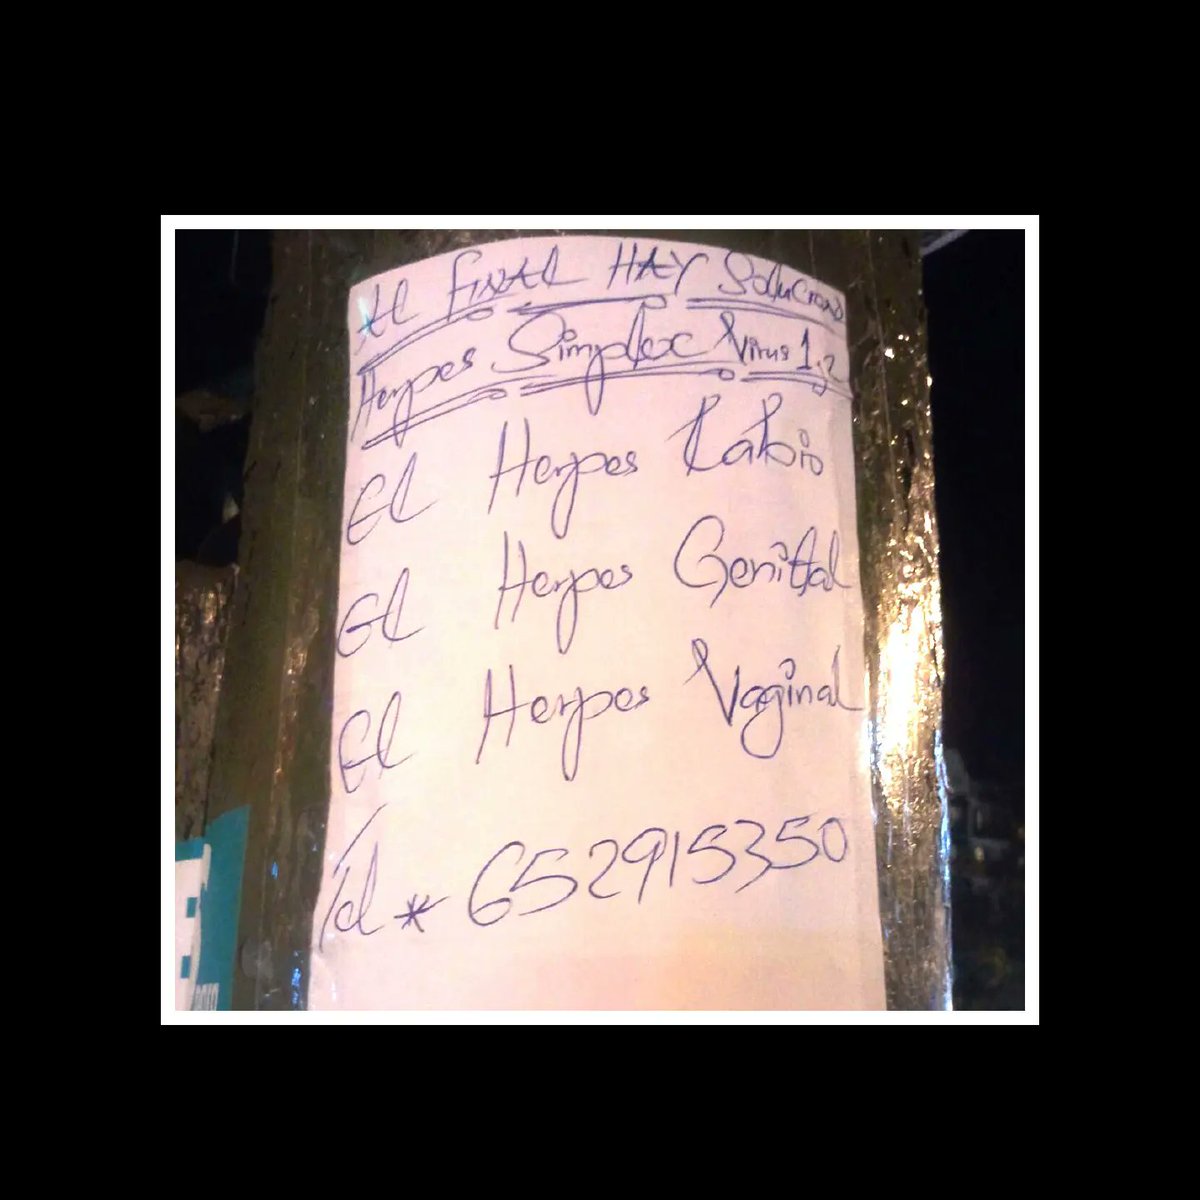 Al Final HAY Solucion
Herpes Simplex Virus 1,2
El Herpes Labio
El Herpes Genital
El Herpes Vaginal
Tel * 652915350